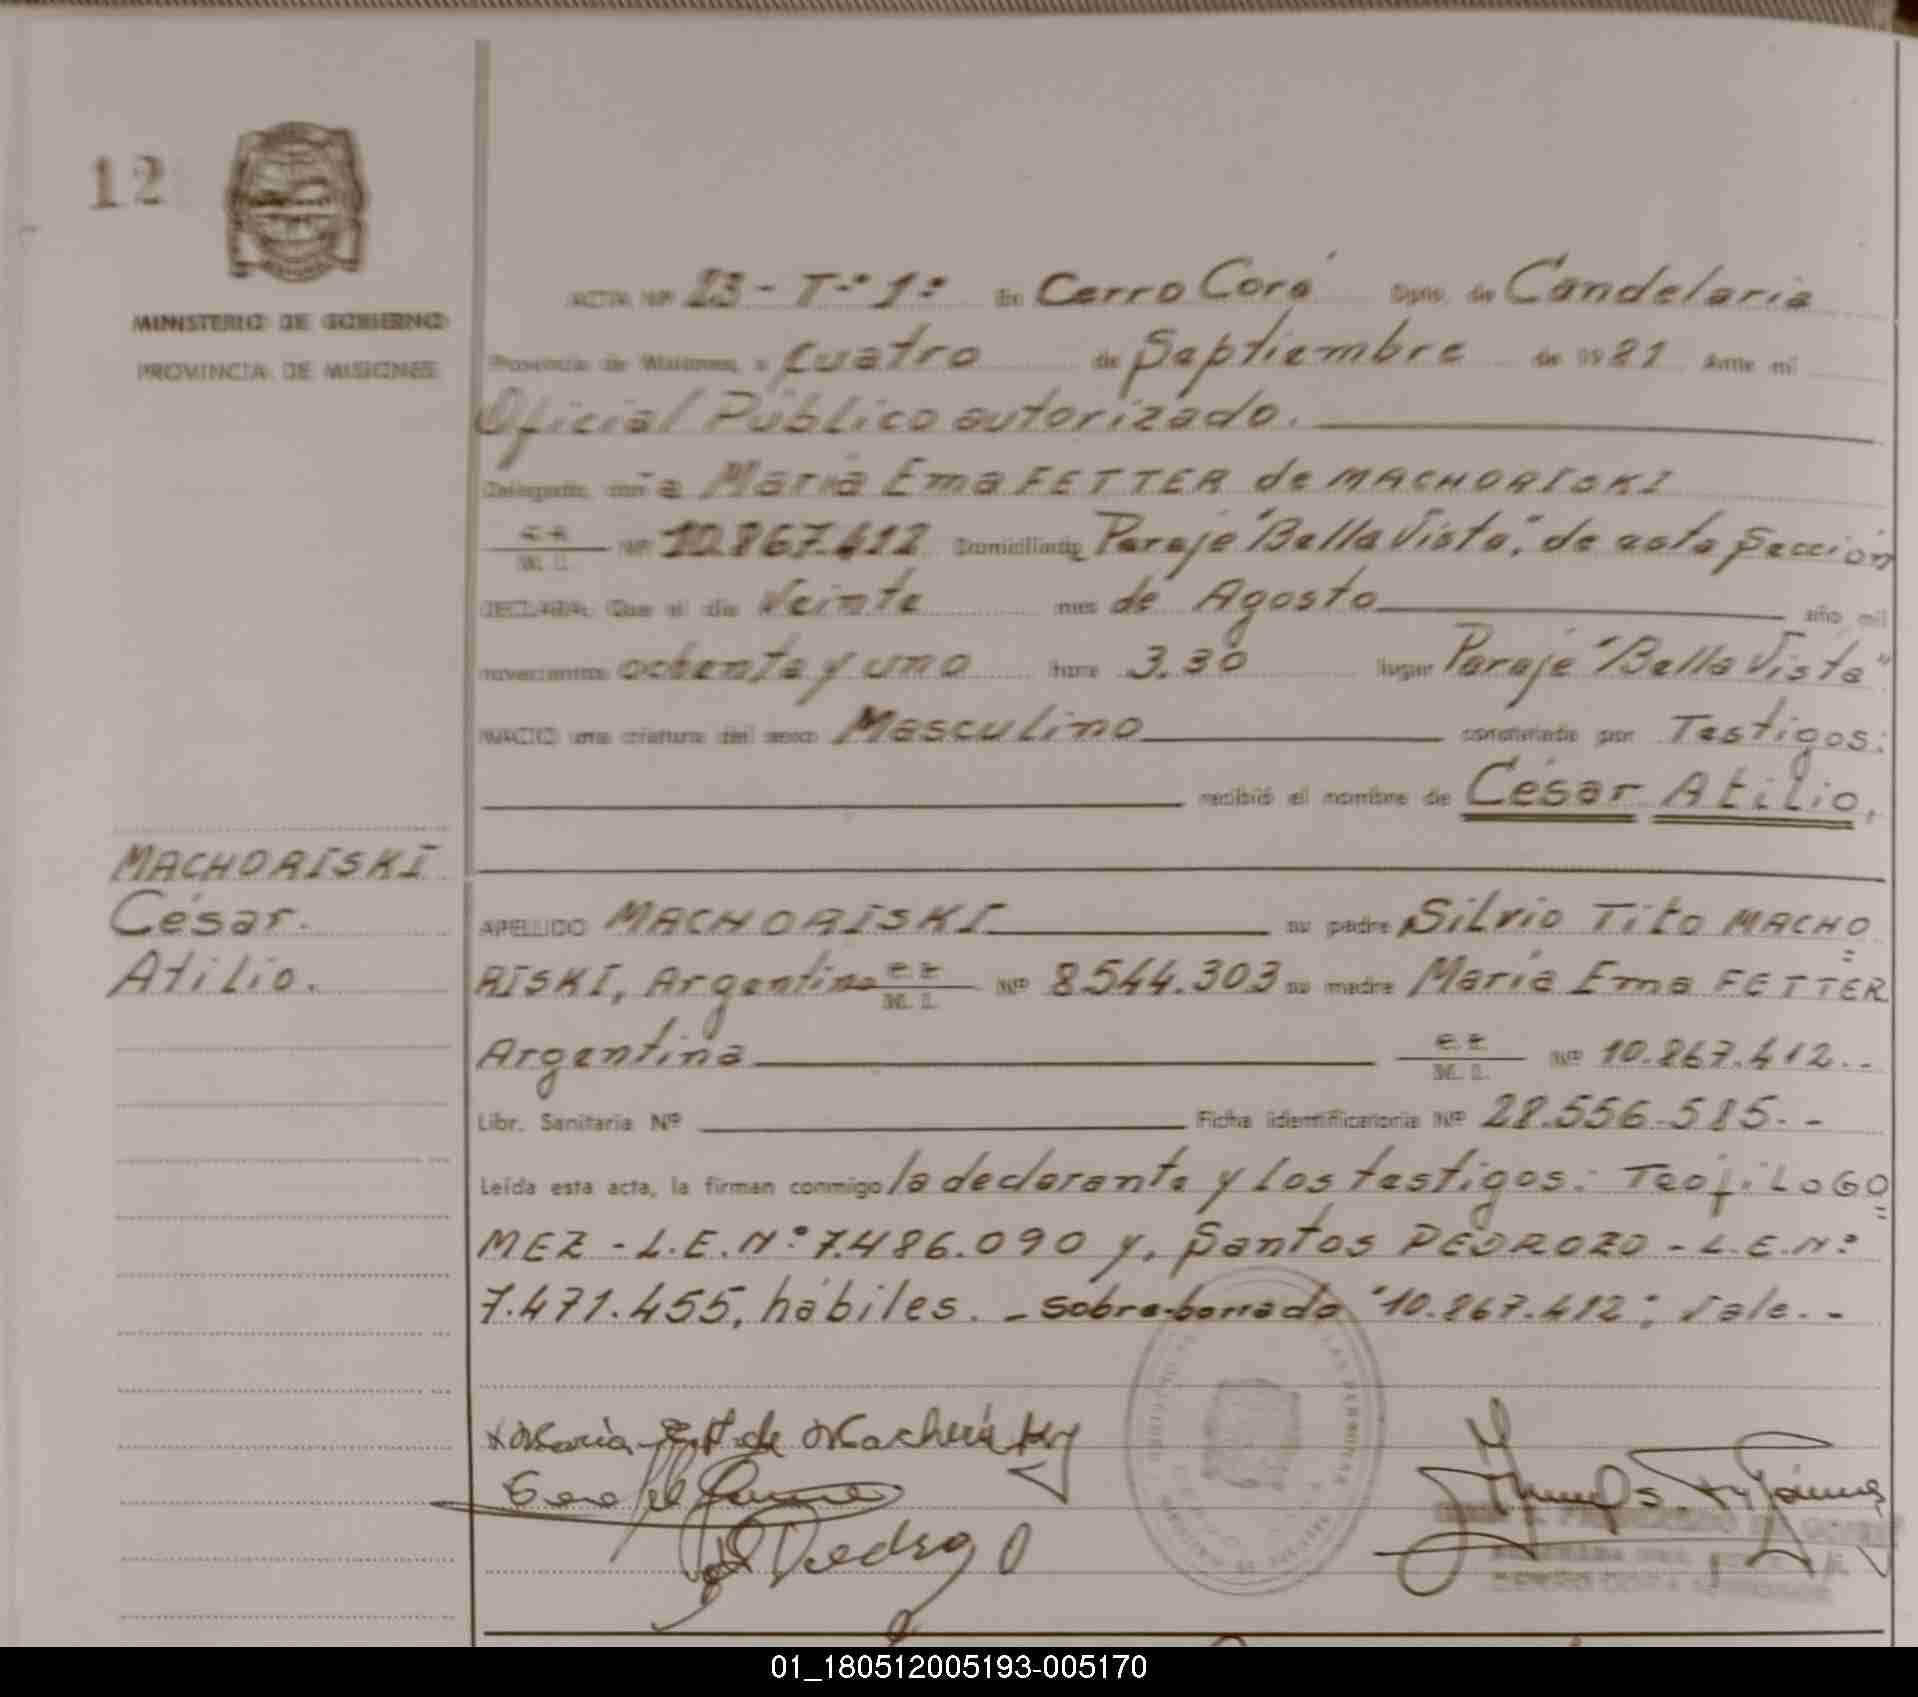 12
MINISTERIO DE GOBIERNO
PROVINCIA DE MISIONES
ACTA Nº 23 - Tº 1º En Cerro Corá Dpto. de Candelaria
Provincia de Misiones, a cuatro de Septiembre de 1981 Ante mí
Oficial Público autorizado.
María Ema FETTER de MACHORISKI
M. I. Nº 10.867.412 Domiciliada Paraje "Bella Vista," de esta Sección
DECLARA: Que el día Veinte mes de Agosto año mil
novecientos ochenta y uno hora 3.30 lugar Paraje "Bella Vista"
NACIO una criatura del sexo Masculino constatado por Testigos:
recibió el nombre de César Atilio,
MACHORISKI
César.
Atilio.
APELLIDO MACHORISKI su padre Silvio Tito MACHO
RISKI, Argentino M. I. Nº 8.544.303 su madre María Ema FETTER
Argentina M. I. Nº 10.867.412.-
Libr. Sanitaria Nº Ficha identificatoria Nº 28.556.585.-
Leída esta acta, la firman conmigo la declarante y los testigos: Teofilo GO
MEZ - L.E.Nº 7.486.090 y, Santos PEDROZO - L.E.Nº
7.471.455, hábiles. - sobre-borrado "10.867.412"; Vale.-
01_180512005193-005170